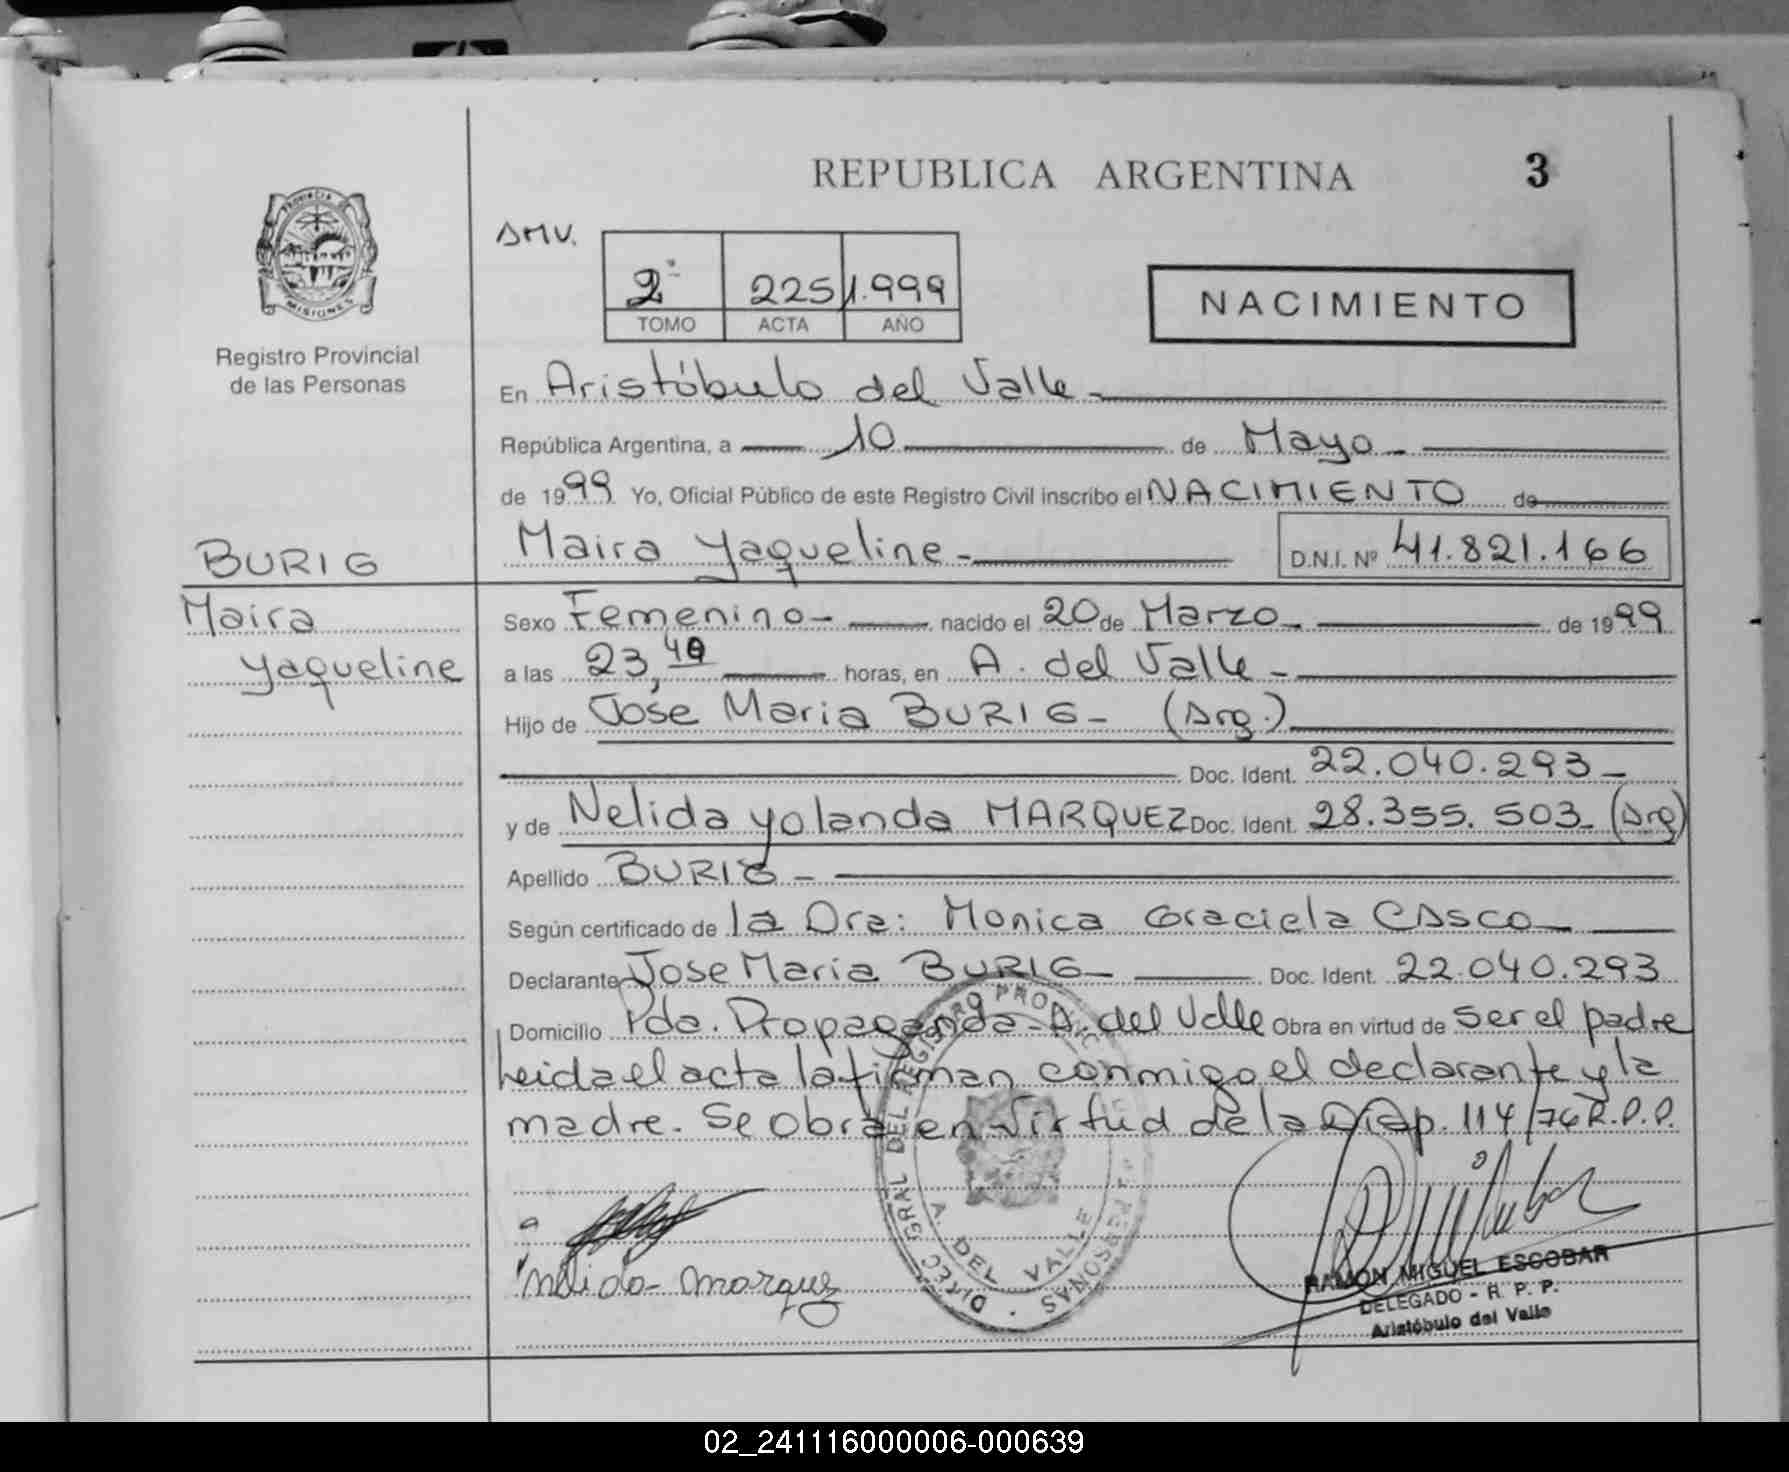 REPUBLICA ARGENTINA
3
PROVINCIA DE
MISIONES
Registro Provincial
de las Personas
SMV.
2º 225 1.999
TOMO ACTA AÑO
NACIMIENTO
En Aristóbulo del Valle -
República Argentina, a 10 de Mayo -
de 1999 Yo, Oficial Público de este Registro Civil inscribo el NACIMIENTO de
Maira Yaqueline - D.N.I. Nº 41.821.166
BURIG
Maira
Yaqueline
Sexo Femenino - nacido el 20 de Marzo - de 1999
a las 23,40 horas, en A. del Valle -
Hijo de Jose Maria BURIG - (Arg.)
Doc. Ident. 22.040.293 -
y de Nelida Yolanda MARQUEZ Doc. Ident. 28.355.503 - (Arg)
Apellido BURIG -
Según certificado de la Dra: Monica Graciela CASCO -
Declarante Jose Maria BURIG - Doc. Ident. 22.040.293
Domicilio Pda. Propaganda - A. del Valle Obra en virtud de ser el padre
Leida el acta la firman conmigo el declarante y la
madre. Se obra en virtud de la Disp. 114/76 R.P.P.
DIREC GRAL DEL REGISTRO PROVINC DE PERSONAS
A. DEL VALLE
Nelida Marquez
RAMON MIGUEL ESCOBAR
DELEGADO - R. P. P.
Aristóbulo del Valle
02_241116000006-000639